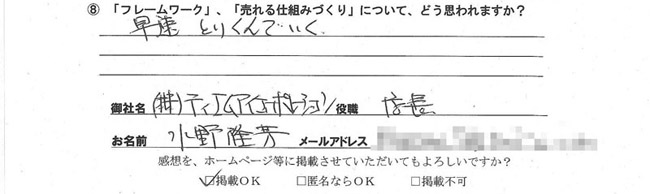 ⑧ 「フレームワーク」、「売れる仕組みづくり」について、どう思われますか？
早速 とりくんでいく
御社名 (株)ティエムアイコーポレーション 役職 店長
お名前 水野隆芳 メールアドレス
感想を、ホームページ等に掲載させていただいてもよろしいですか？
☑掲載ＯＫ □匿名ならＯＫ □掲載不可